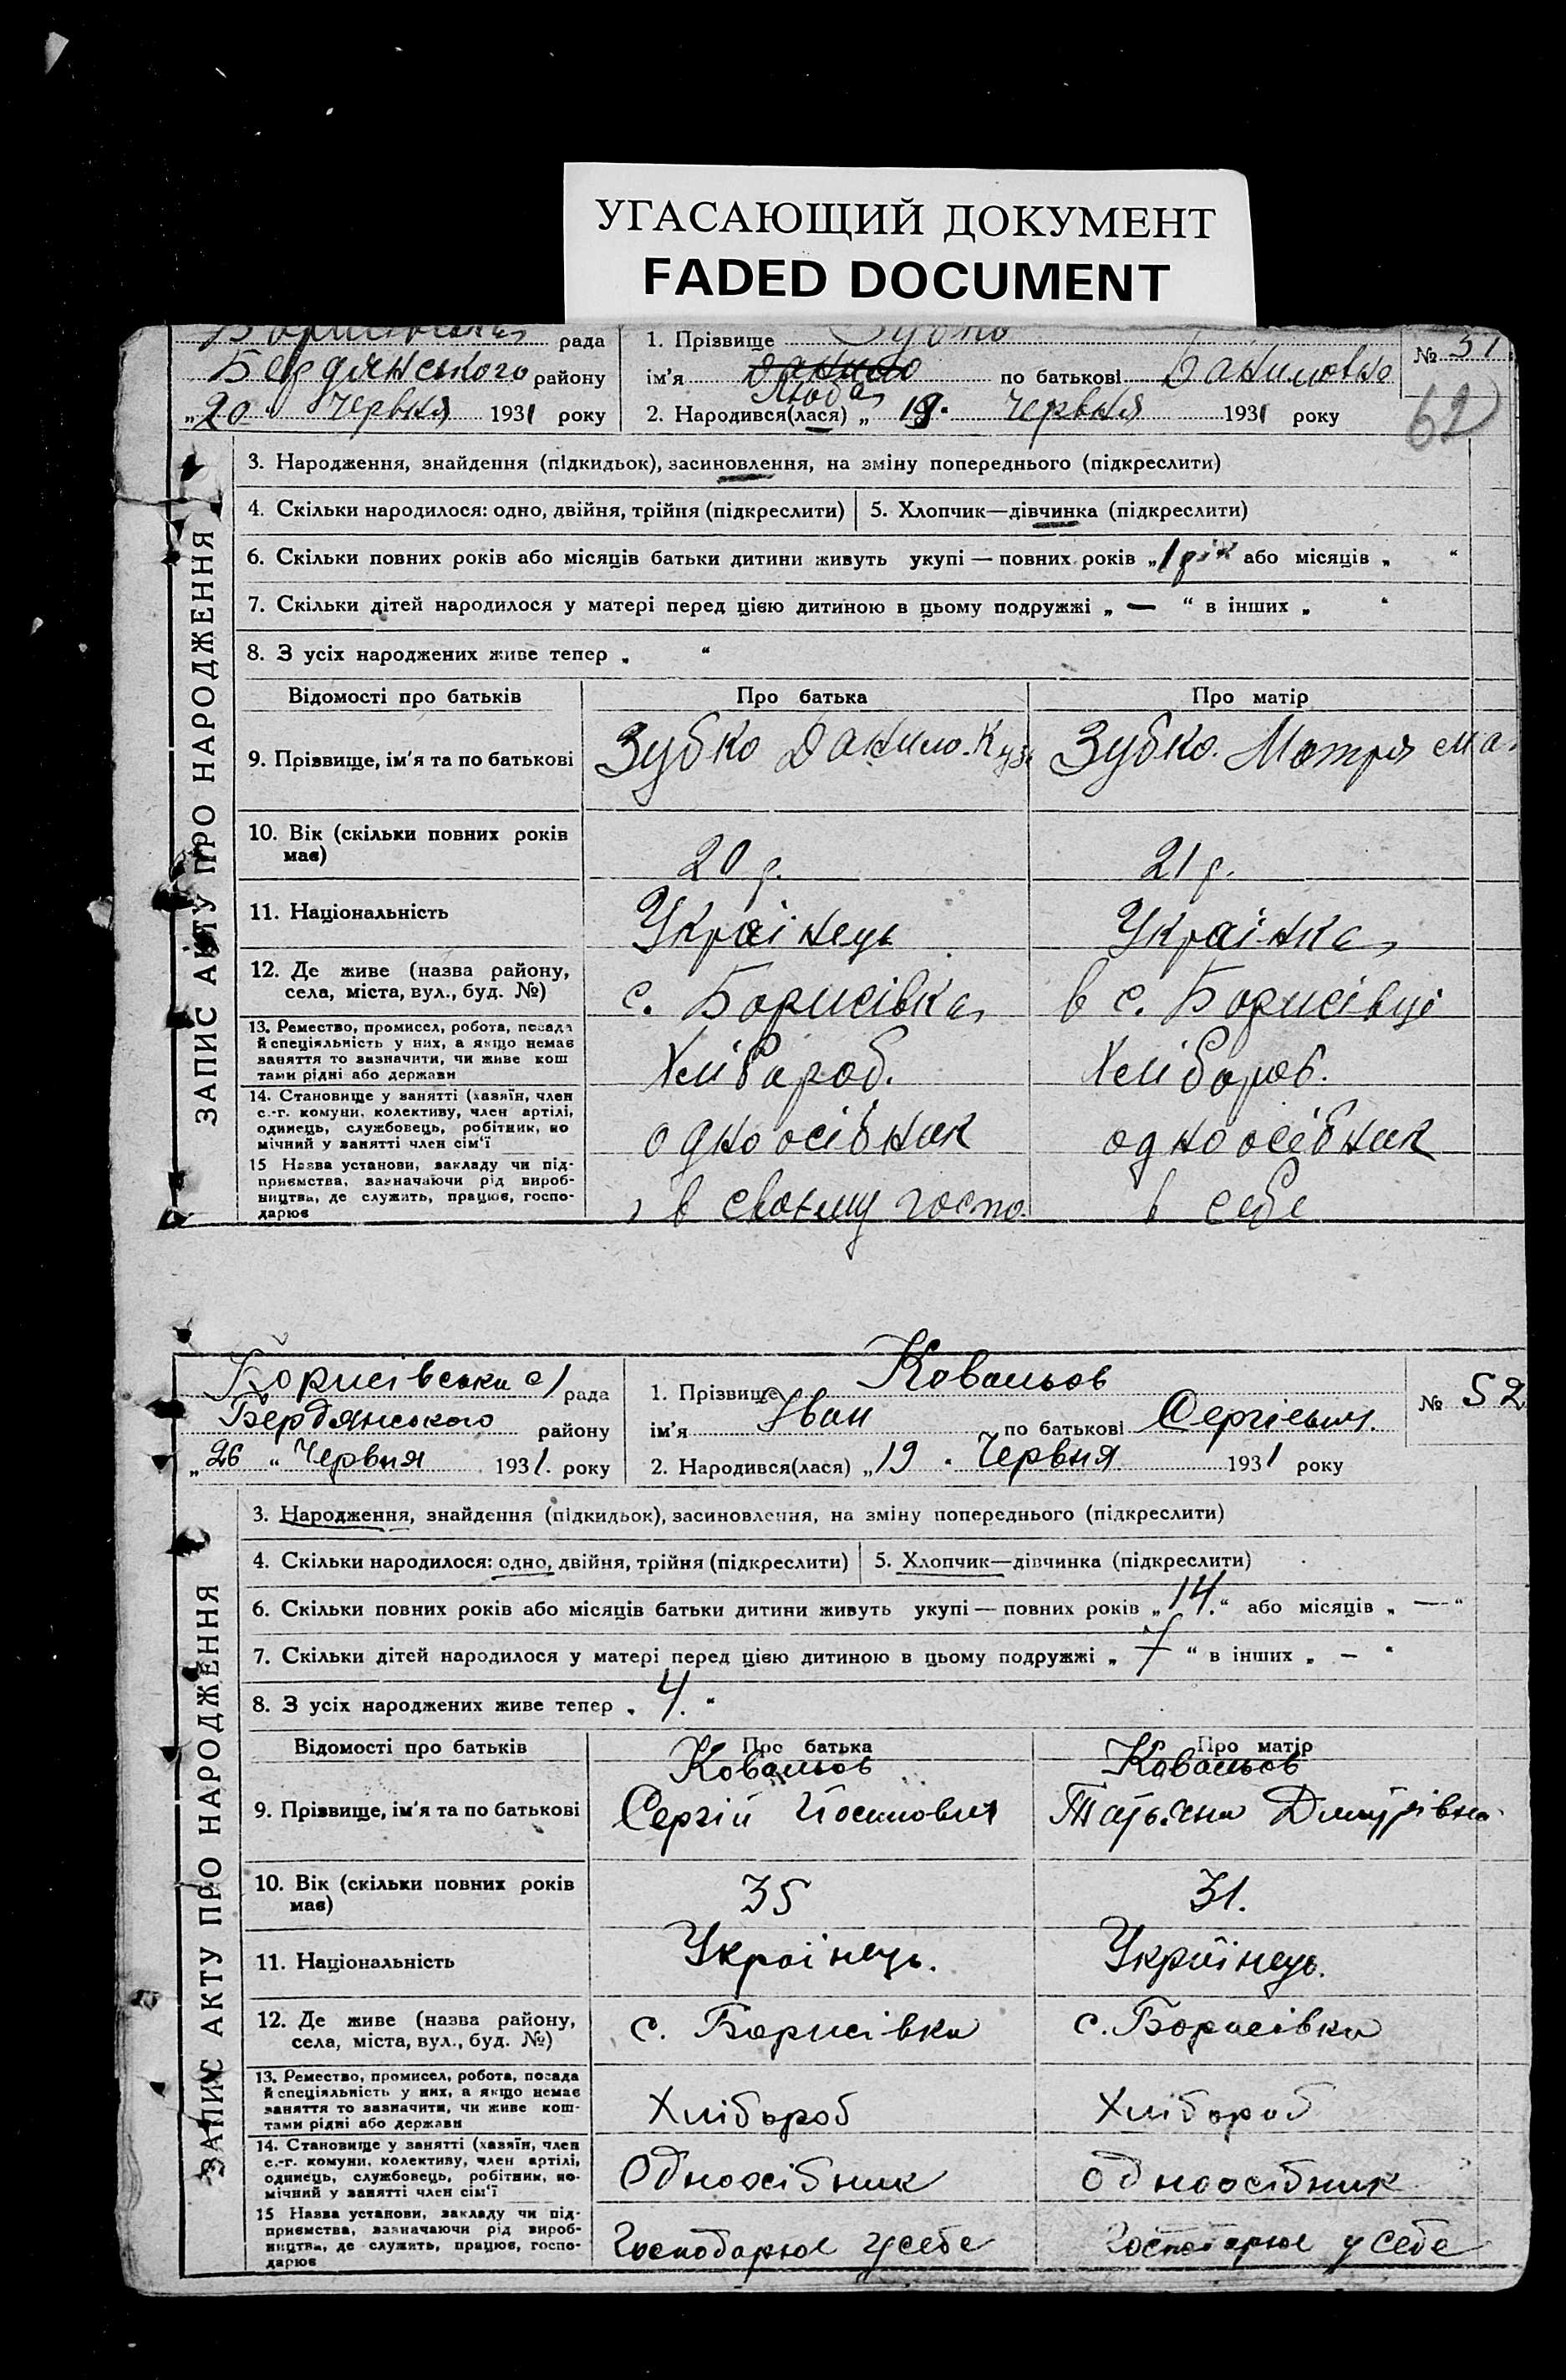 УГАСАЮЩИЙ ДОКУМЕНТ
FADED DOCUMENT
рада
Бердянського району
„20" Червня 1931 року
1. Прізвище Зубко
ім'я Данило Люба по батькові Даниловно
2. Народився(лася) „ 19. Червня 1931 року
№ 51
62
ЗАПИС АКТУ ПРО НАРОДЖЕННЯ
3. Народження, знайдення (підкидьок), засиновлення, на зміну попереднього (підкреслити)
4. Скільки народилося: одно, двійня, трійня (підкреслити) 5. Хлопчик—дівчинка (підкреслити)
6. Скільки повних років або місяців батьки дитини живуть укупі — повних років „1 рік або місяців „ “
7. Скільки дітей народилося у матері перед цією дитиною в цьому подружжі „ — “ в інших „ “
8. З усіх народжених живе тепер „ “
Відомості про батьків Про батька Про матір
9. Прізвище, ім'я та по батькові Зубко Данило Куз. Зубко. Мотря
10. Вік (скільки повних років
має) 20 р. 21 р.
11. Національність Украінець Украінка
12. Де живе (назва району,
села, міста, вул., буд. №) с. Борисівка в с. Борисівці
13. Ремество, промисел, робота, посада
й спеціяльність у них, а якщо немає
заняття то зазначити, чи живе кош
тами рідні або держави Хлібороб. Хлібороб.
14. Становище у занятті (хазяїн, член
с.-г. комуни, колективу, член артілі,
одинець, службовець, робітник, по
мічний у занятті член сім'ї одноосібник одноосібник
15 Назва установи, закладу чи під-
приємства, зазначаючи рід вироб-
ництва, де служить, працює, госпо-
дарює в своєму госпо. в себе
Борисівська с/рада
Бердянського району
„26 “ Червня 1931. року
1. Прізвище Ковальов
ім'я Іван по батькові Сергієвич.
2. Народився(лася) „19 . Червня 1931 року
№ 52
ЗАПИС АКТУ ПРО НАРОДЖЕННЯ
3. Народження, знайдення (підкидьок), засиновлення, на зміну попереднього (підкреслити)
4. Скільки народилося: одно, двійня, трійня (підкреслити) 5. Хлопчик—дівчинка (підкреслити)
6. Скільки повних років або місяців батьки дитини живуть укупі — повних років „14.“ або місяців „ — “
7. Скільки дітей народилося у матері перед цією дитиною в цьому подружжі „ 7 “ в інших „ — “
8. З усіх народжених живе тепер „ 4. “
Відомості про батьків Про батька Про матір
Ковальов Ковальов
9. Прізвище, ім'я та по батькові Сергій Йосипович Татьяна Дмитрівна
10. Вік (скільки повних років
має) 35 31.
11. Національність Украінець. Украінець.
12. Де живе (назва району,
села, міста, вул., буд. №) с. Борисівка с. Борисівка
13. Ремество, промисел, робота, посада
й спеціяльність у них, а якщо немає
заняття то зазначити, чи живе кош-
тами рідні або держави Хлібороб Хлібороб
14. Становище у занятті (хазяїн, член
с.-г. комуни, колективу, член артілі,
одинець, службовець, робітник, по-
мічний у занятті член сім'ї Одноосібник одноосібник
15 Назва установи, закладу чи під-
приємства, зазначаючи рід вироб-
ництва, де служить, працює, госпо-
дарює Господарює у себе Господарює у себе